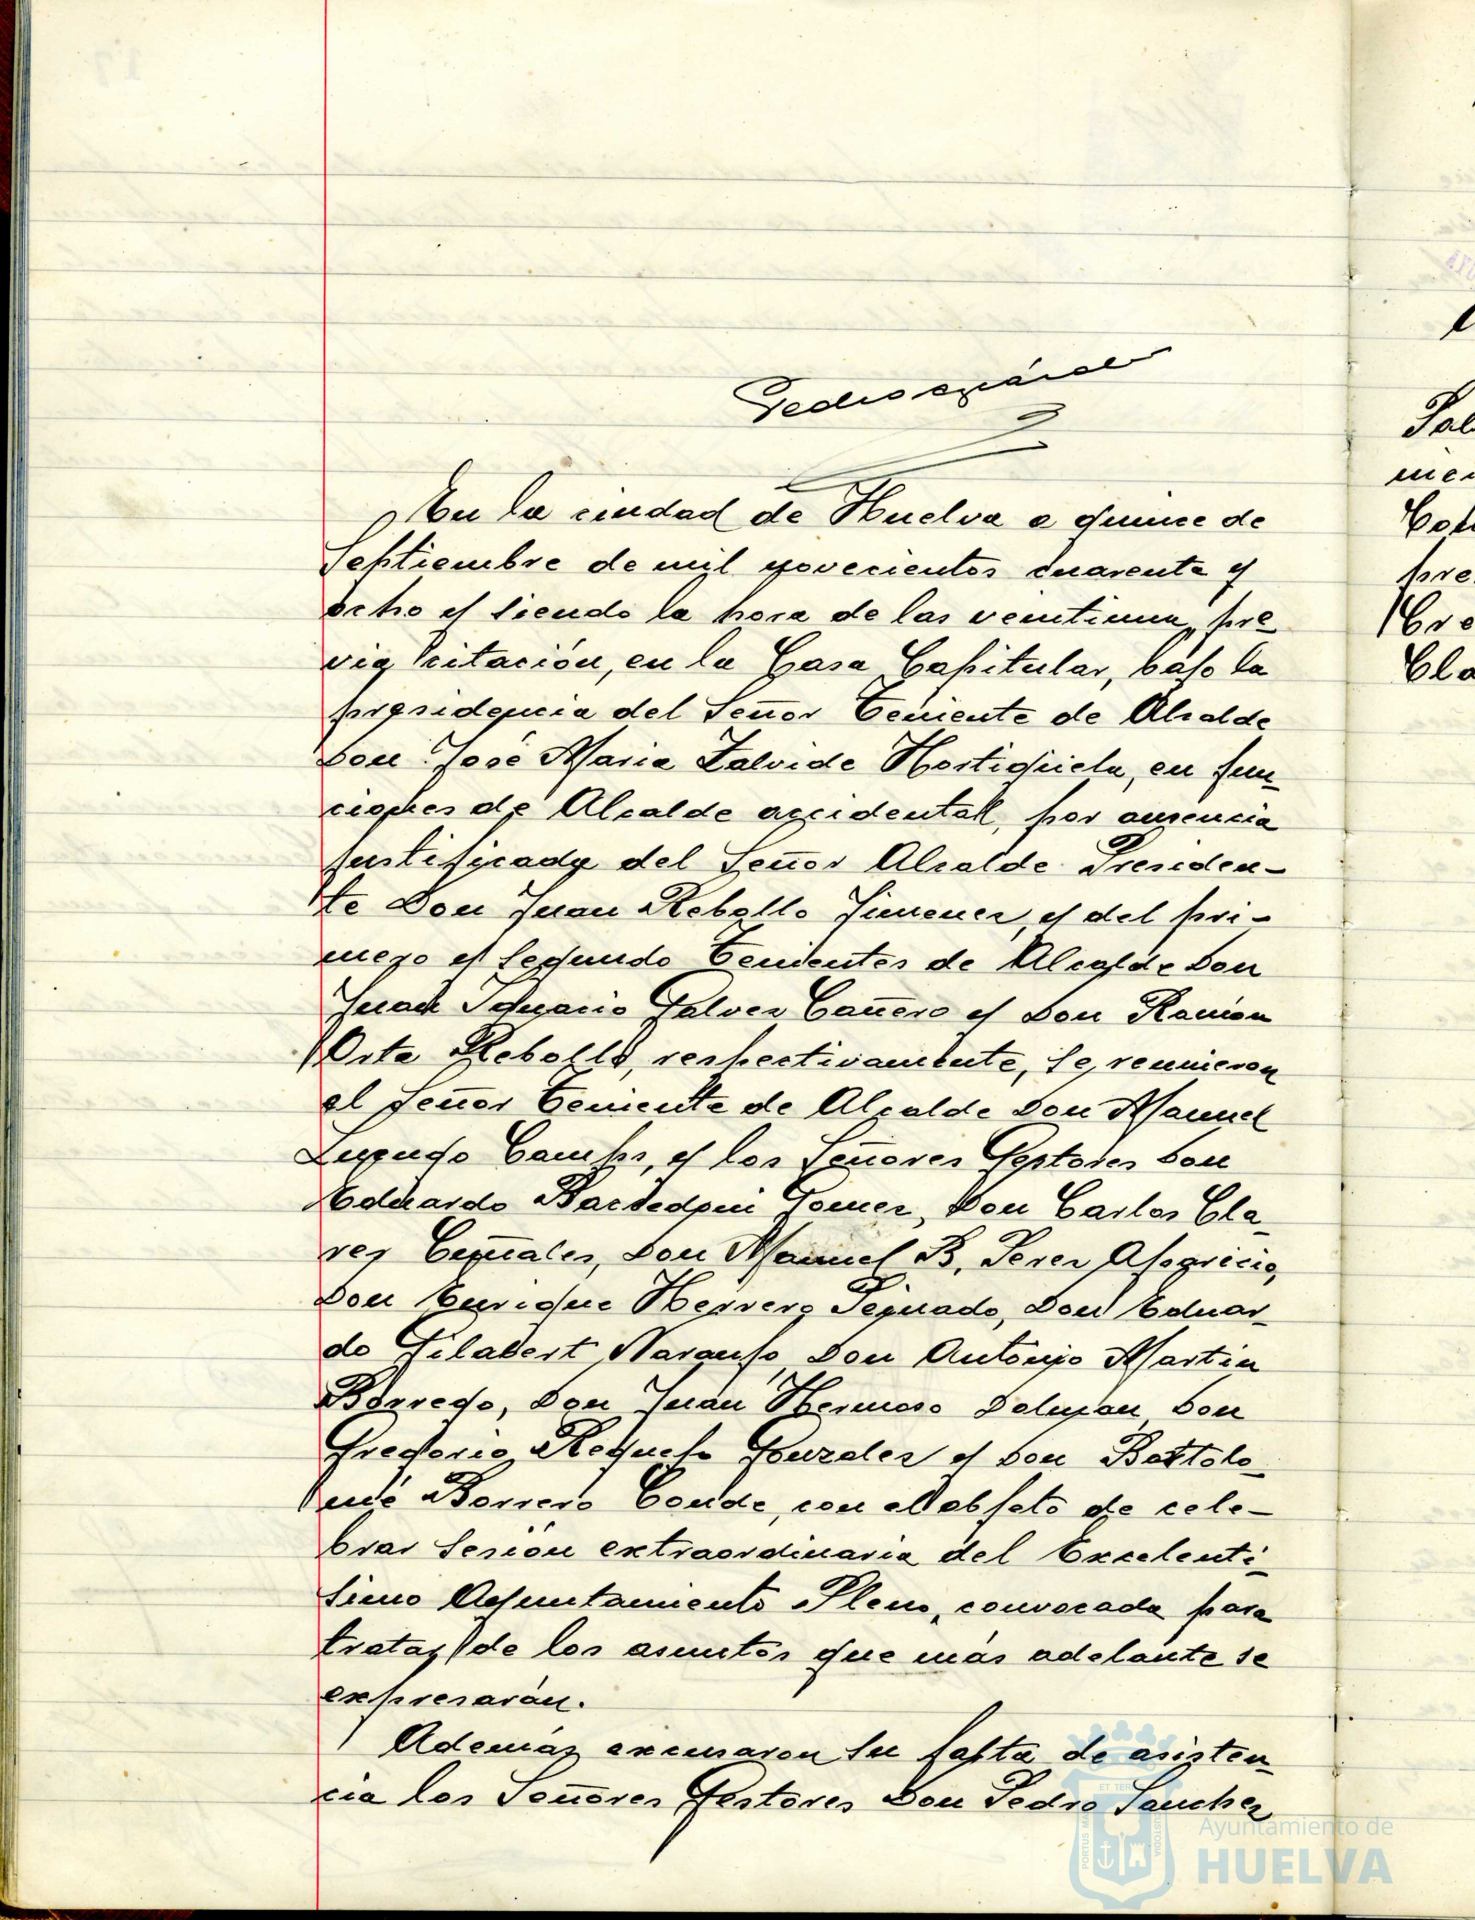 Pedro
En la ciudad de Huelva a quince de
Septiembre de mil novecientos cuarenta y
ocho y siendo la hora de las veintiuna, pre-
via citación, en la Casa Capitular, bajo la
presidencia del Señor Teniente de Alcalde
Don José Maria Zalvide Hortigüela, en fun-
ciones de Alcalde accidental, por ausencia
justificada del Señor Alcalde Presiden-
te Don Juan Rebollo Jimenez, y del pri-
mero y segundo Tenientes de Alcalde Don
Juan Ignacio Galvez Cañero y Don Ramón
Orta Rebollo, respectivamente, se reunieron
el Señor Teniente de Alcalde Don Manuel
Luengo, y los Señores Gestores Don
Eduardo Gomez, Don Carlos Cla-
res, Don Manuel B. Perez Aparicio,
Don Enrique Herrero Peguado, Don Eduar-
do Gilabert Naranjo, Don Antonio Martin
Borrego, Don Juan Hermoso, Don
Gregorio Requejo Gonzalez y Don Bartolo-
mé Borrero Conde, con el objeto de cele-
brar sesión extraordinaria del Excelentí-
simo Ayuntamiento Pleno, convocada para
tratar de los asuntos que más adelante se
expresarán.
Además excusaron su falta de asisten-
cia los Señores Gestores Don Pedro Sanchez
Ayuntamiento de
HUELVA